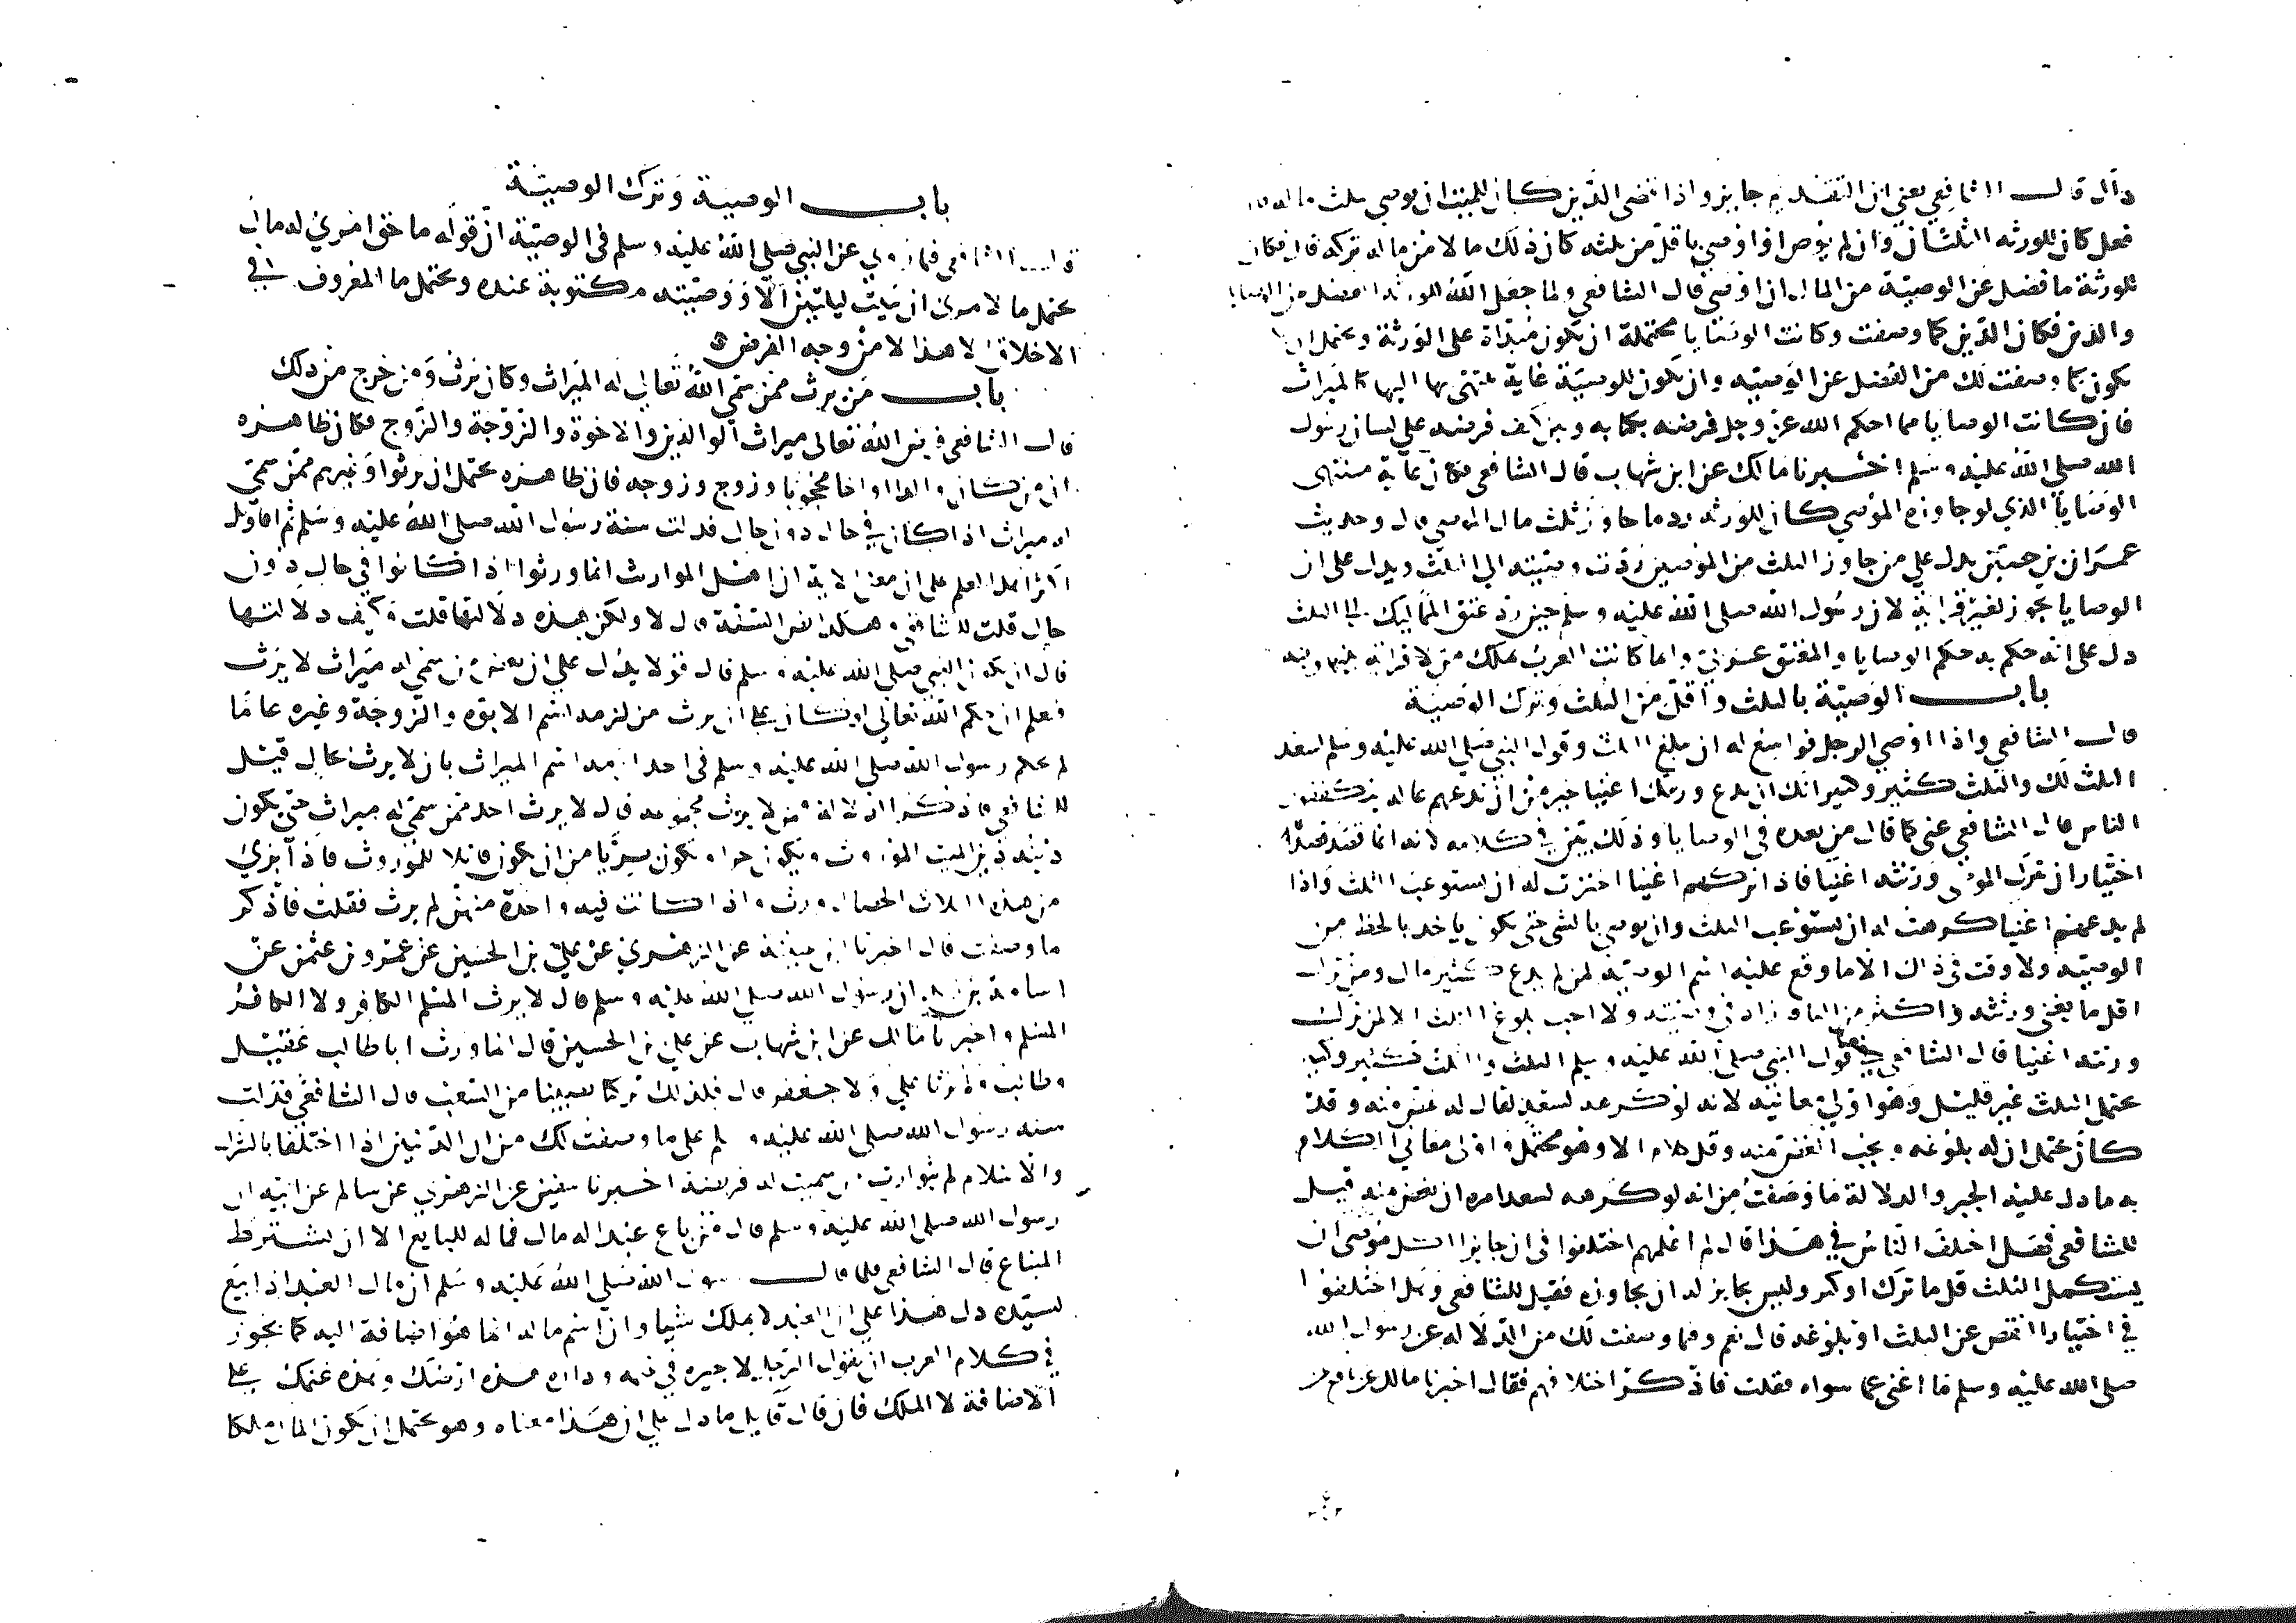 دال قال الشافعي يعني ان التقديم جايز واذا قضى الدين كان للميت ان يوصي بثلث ماله فان
فعل كان للورثه الثلثان وان لم يوص او اوصى باقل من ثلثه كان ذلك مالا من ماله تركه قال فكان
للورثة ما فضل عن الوصية من المال ان اوصى قال الشافعي ولما جعل الله للورثه الفضل عن الوصايا
والدين فكان الدين كما وصفت وكانت الوصايا محتملة ان تكون مبداة على الورثة ويحتمل ان لا
تكون كما وصفت لك من الفضل عن الوصيه وان يكون للوصية غاية ينتهى بها اليها كالميراث
فان كانت الوصايا مما احكم الله عز وجل فرضه بكتابه وبين كيف فرضه على لسان رسول
الله صلى الله عليه وسلم اخبرنا مالك عن ابن شهاب قال الشافعي فكان غاية منتهى
الوصايا الذي لو جاوزه الموصي كان للورثه رد ما جاوز ثلث مال الموصي قال وحديث
عمران بن حصين يدل على من جاوز الثلث من الموصين ردت وصيته الى الثلث ويدل على ان
الوصايا تجوز لغير قرابة لان رسول الله صلى الله عليه وسلم حين رد عتق المماليك الى الثلث
دل على انه حكم به حكم الوصايا والمعتق عربي وانما كانت العرب تملك من لا قرابة بينها وبينه
باب الوصية بالثلث واقل من الثلث وترك الوصية
قال الشافعي واذا اوصى الرجل فواسع له ان يبلغ الثلث وقول النبي صلى الله عليه وسلم لسعد
الثلث لك والثلث كثير او كبير انك ان تدع ورثتك اغنيا خير من ان تدعهم عاله يتكففون
الناس قال الشافعي عنى كما قال من بعده في الوصايا وذلك بين في كلامه لانه انما قصد قصد
اختيار ان يترك الموصي ورثته اغنيا فاذا تركهم اغنيا اخترت له ان يستوعب الثلث واذا
لم يدعهم اغنيا كرهت له ان يستوعب الثلث وان يوصي بالشي حتى يكون ياخد بالحظ من
الوصيه ولا وقت في ذلك الا ما وقع عليه اسم الوصيه لمن لم يدع كثير مال ومن ترك
اقل مما يغني ورثته واكثر من التافه زاد في وصيته ولا احب بلوغ الثلث الا لمن ترك
ورثته اغنيا قال الشافعي في قول النبي صلى الله عليه وسلم الثلث والثلث كثير او كبير
يحتمل الثلث غير قليل وهو اولى معانيه لانه لو كرهه لسعد لقال له غض منه وقد
كان يحتمل ان له بلوغه ويجب الغض منه وقل كلام الا وهو محتمل واولى معاني الكلام
به ما دل عليه الخبر والدلالة ما وصفت من انه لو كرهه لسعد امره ان يغض منه قيل
للشافعي فهل اختلف الناس في هذا قال لم اعلمهم اختلفوا في ان جايزا لكل موصى ان
يستكمل الثلث قل ما ترك او كثر وليس بجايز له ان يجاوزه فقيل للشافعي وهل اختلفوا
في اختيار النقص عن الثلث او بلوغه قال نعم وفيما وصفت لك من الدلاله عن رسول الله
صلى الله عليه وسلم ما اغنى عما سواه فقلت فاذكر اختلافهم فقال اخبرنا مالك عن نافع عن
باب الوصية وترك الوصية
قال الشافعي فيما روي عن النبي صلى الله عليه وسلم في الوصية ان قوله ما حق امرئ له مال
يحتمل ما لامرئ ان يبيت ليلتين الا ووصيته مكتوبة عنده ويحتمل ما المعروف في
الاخلاق الا هذا لا من وجه الفرض
باب من يرث ممن سمى الله تعالى له الميراث وكان يرث ومن خرج من ذلك
قال الشافعي فرض الله تعالى ميراث الوالدين والاخوة والزوجة والزوج فكان ظاهره
ان من كان والدا او اخا محجوبا وزوج وزوجه فان ظاهره يحتمل ان يرثوا وغيرهم ممن سمي
له ميراث اذا كان في حال دون حال فدلت سنة رسول الله صلى الله عليه وسلم ثم اقاويل
اكثر اهل العلم على ان معنى الاية ان اهل المواريث انما ورثوا اذا كانوا في حال دون
حال قلت للشافعي وهكذا نص السنة قال لا ولكن هكذا دلالتها قلت وكيف دلالتها
قال ان يكون النبي صلى الله عليه وسلم قال قولا يدل على ان بعض من سمي له ميراث لا يرث
فعلم ان حكم الله تعالى لو كان على ان يرث من لزمه اسم الابوه والزوجة وغيره عاما
لم يحكم رسول الله صلى الله عليه وسلم في احد لزمه اسم الميراث بان لا يرث بحال قيل
للشافعي فاذكر الدلالة فيمن لا يرث مجموعه قال لا يرث احد ممن سمي له ميراث حتى يكون
دينه دين الميت الموروث ويكون حرا ويكون بريا من ان يكون قاتلا للموروث فاذا برئ
من هذه الثلاث الخصال ورث واذا كانت فيه واحدة منهن لم يرث فقلت فاذكر
ما وصفت قال اخبرنا ابن عيينة عن الزهري عن علي بن الحسين عن عمرو بن عثمن عن
اسامة بن زيد ان رسول الله صلى الله عليه وسلم قال لا يرث المسلم الكافر ولا الكافر
المسلم واخبرنا مالك عن ابن شهاب عن علي بن الحسين قال انما ورث ابا طالب عقيل
وطالب ولم يرثه علي ولا جعفر قال فلذلك تركنا نصيبنا من الشعب قال الشافعي فدلت
سنه رسول الله صلى الله عليه وسلم على ما وصفت لك من ان الدينين اذا اختلفا بالشرك
والاسلام لم يتوارث من سميت له فريضة اخبرنا سفين عن الزهري عن سالم عن ابيه ان
رسول الله صلى الله عليه وسلم قال من باع عبدا له مال فماله للبايع الا ان يشترط
المبتاع قال الشافعي فلما قال رسول الله صلى الله عليه وسلم ان مال العبد اذا بيع
لسيده دل هذا على ان العبد لا يملك شيا وان اسم ماله انما هو اضافة اليه كما يجوز
في كلام العرب ان يقول الرجل لاجيره في غنمه وداره هذه ارضك وهذه غنمك على
الاضافة لا الملك فان قال قايل ما دل على ان هذا معناه وهو يحتمل ان يكون المال ملكا